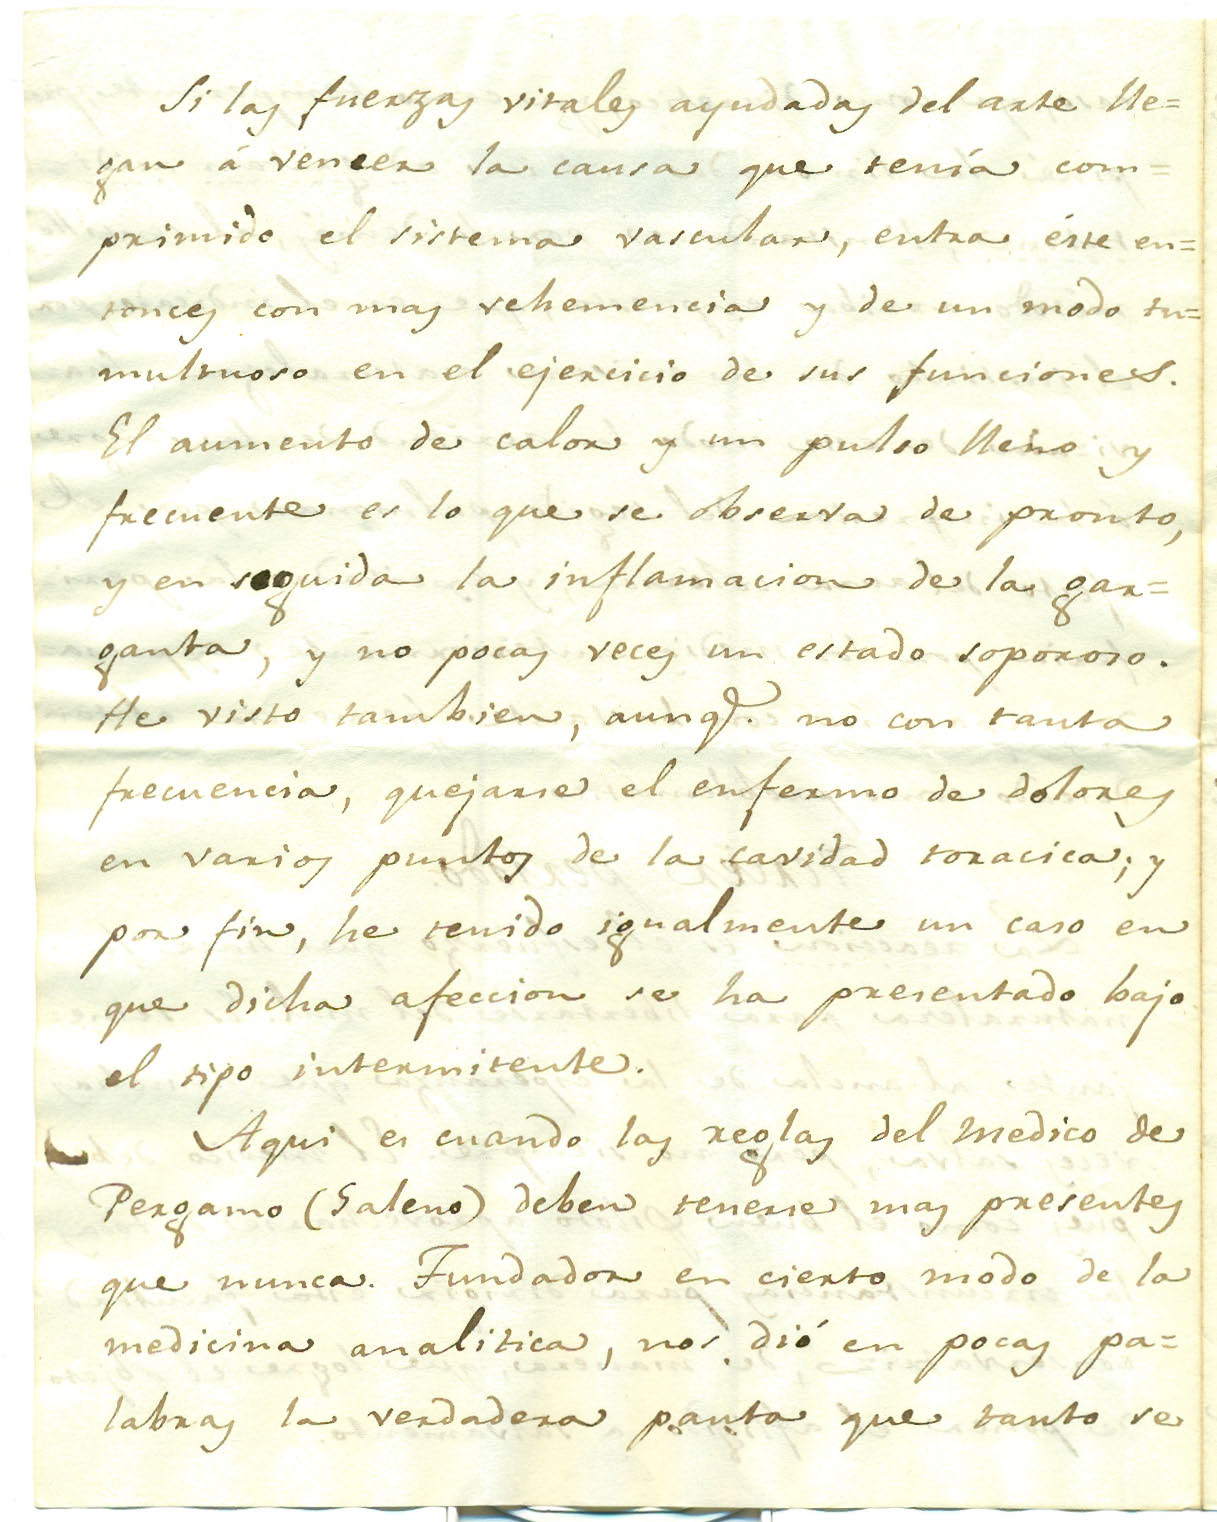 Si las fuerzas vitales ayudadas del arte lle=
gan á vencer la causa que tenía com=
primido el sistema vascular, entra éste en=
tonces con mas vehemencia y de un modo tu=
multuoso en el ejercicio de sus funciones.
El aumento de calor y un pulso lleno y
frecuente es lo que se observa de pronto,
y en seguida la inflamacion de la gar=
ganta, y no pocas veces un estado soporoso.
He visto tambien, aunq.e no con tanta
frecuencia, quejarse el enfermo de dolores
en varios puntos de la cavidad toracica; y
por fin, he tenido igualmente un caso en
que dicha afeccion se ha presentado bajo
el tipo intermitente.
Aqui es cuando las reglas del medico de
Pergamo (Galeno) deben tenerse mas presentes
que nunca. Fundador en cierto modo de la
medicina analitica, nos dió en pocas pa=
labras la verdadera pauta que tanto se